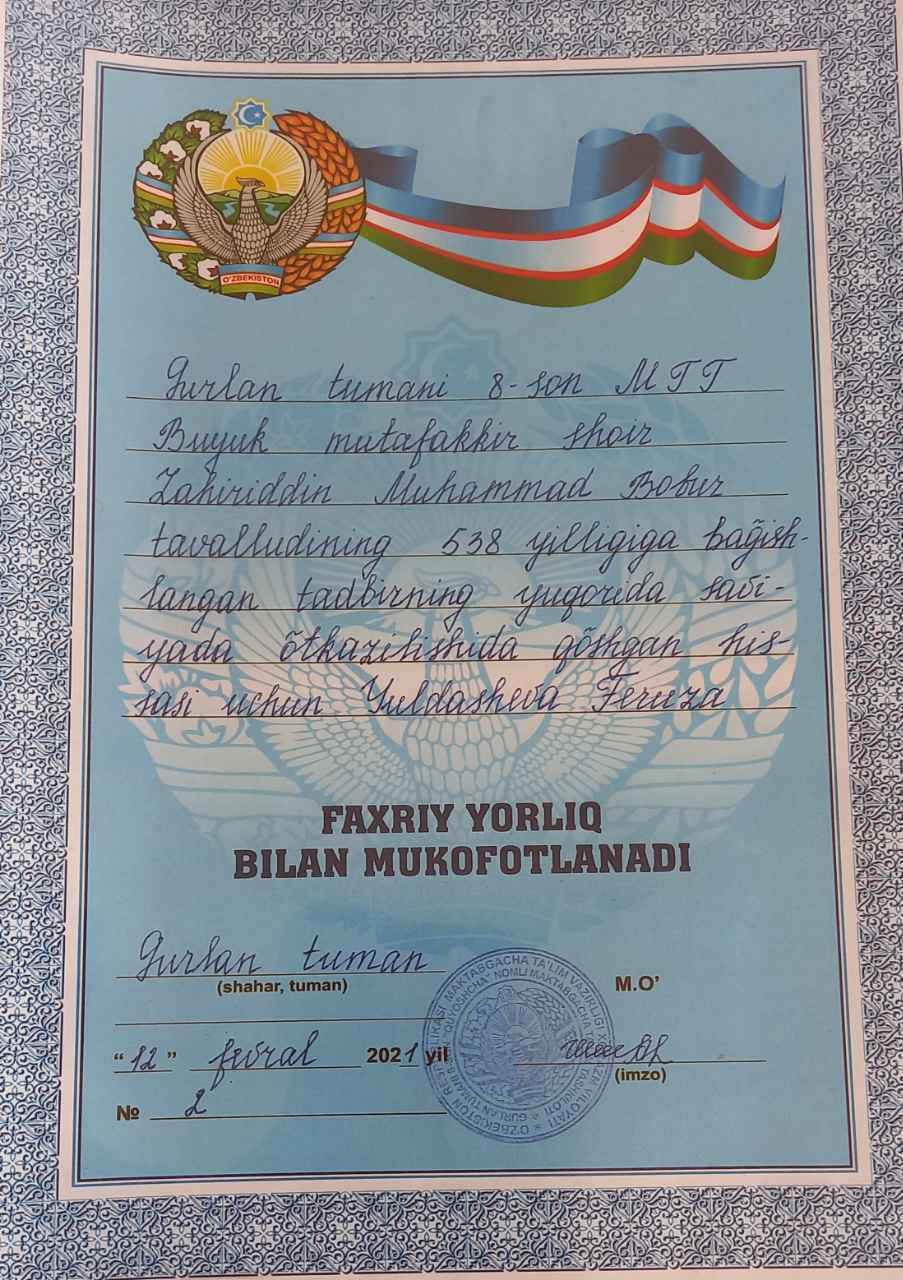 O'ZBEKISTON
Gurlan tumani 8-son MTT
Buyuk mutafakkir shoir
Zahiriddin Muhammad Bobur
tavalludining 538 yilligiga bag̃ish-
langan tadbirning yuqorida savi-
yada õtkazilishida qõshgan his-
sasi uchun Yuldasheva Feruza
FAXRIY YORLIQ
BILAN MUKOFOTLANADI
Gurlan tuman
(shahar, tuman)
M.O'
“ 12 ” fevral 2021 yil
(imzo)
№ 2
MAKTABGACHA TA'LIM VAZIRLIGI
"QUYOSHCHA" NOMLI MAKTABGACHA